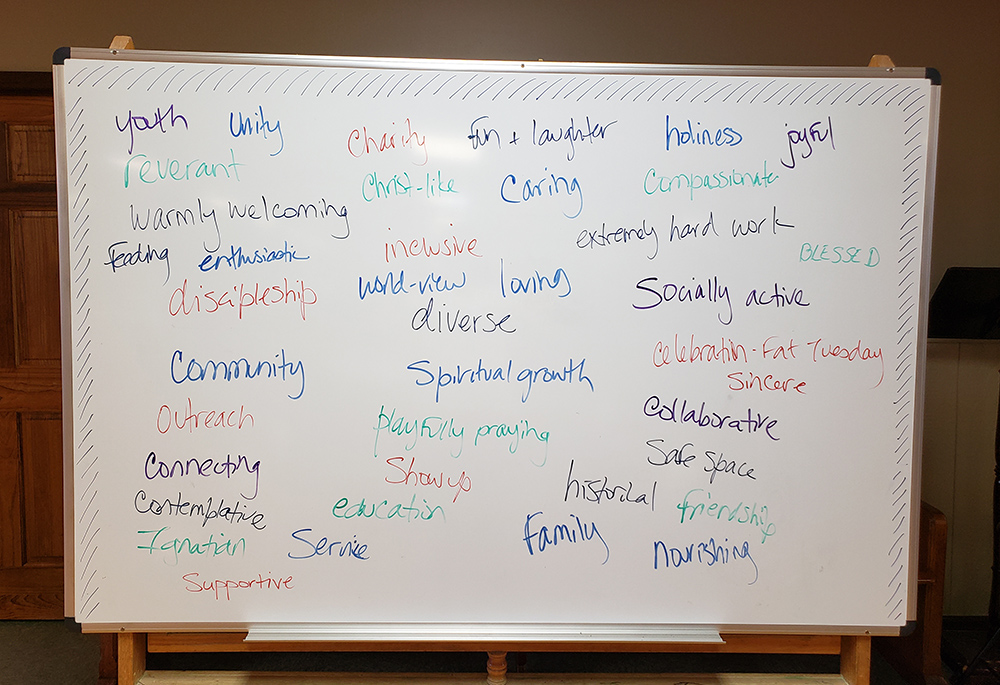 youth unity charity fun + laughter holiness joyful
reverant Christ-like caring compassionate
warmly welcoming extremely hard work
feeding enthusiastic inclusive BLESSED
discipleship world-view loving Socially active
diverse
celebration - Fat Tuesday
Community Spiritual growth sincere
Outreach playfully praying collaborative
Connecting Show up Safe space
Contemplative education historical friendship
Ignatian Service Family nourishing
Supportive